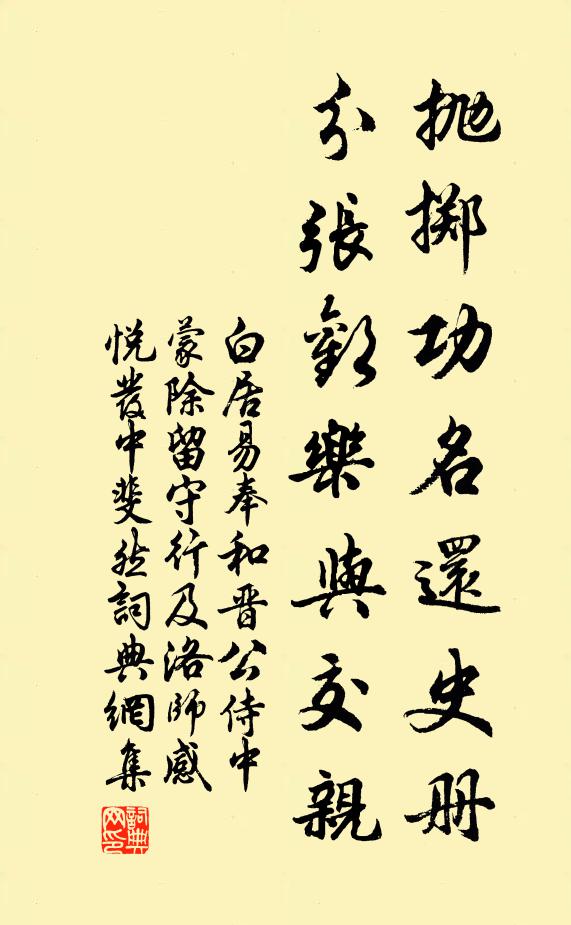 抛掷功名還史册
分張歡樂與交親
白居易奉和晋公侍中
蒙除留守行及洛師感
悦發中斐然詞典網集
詞典网印